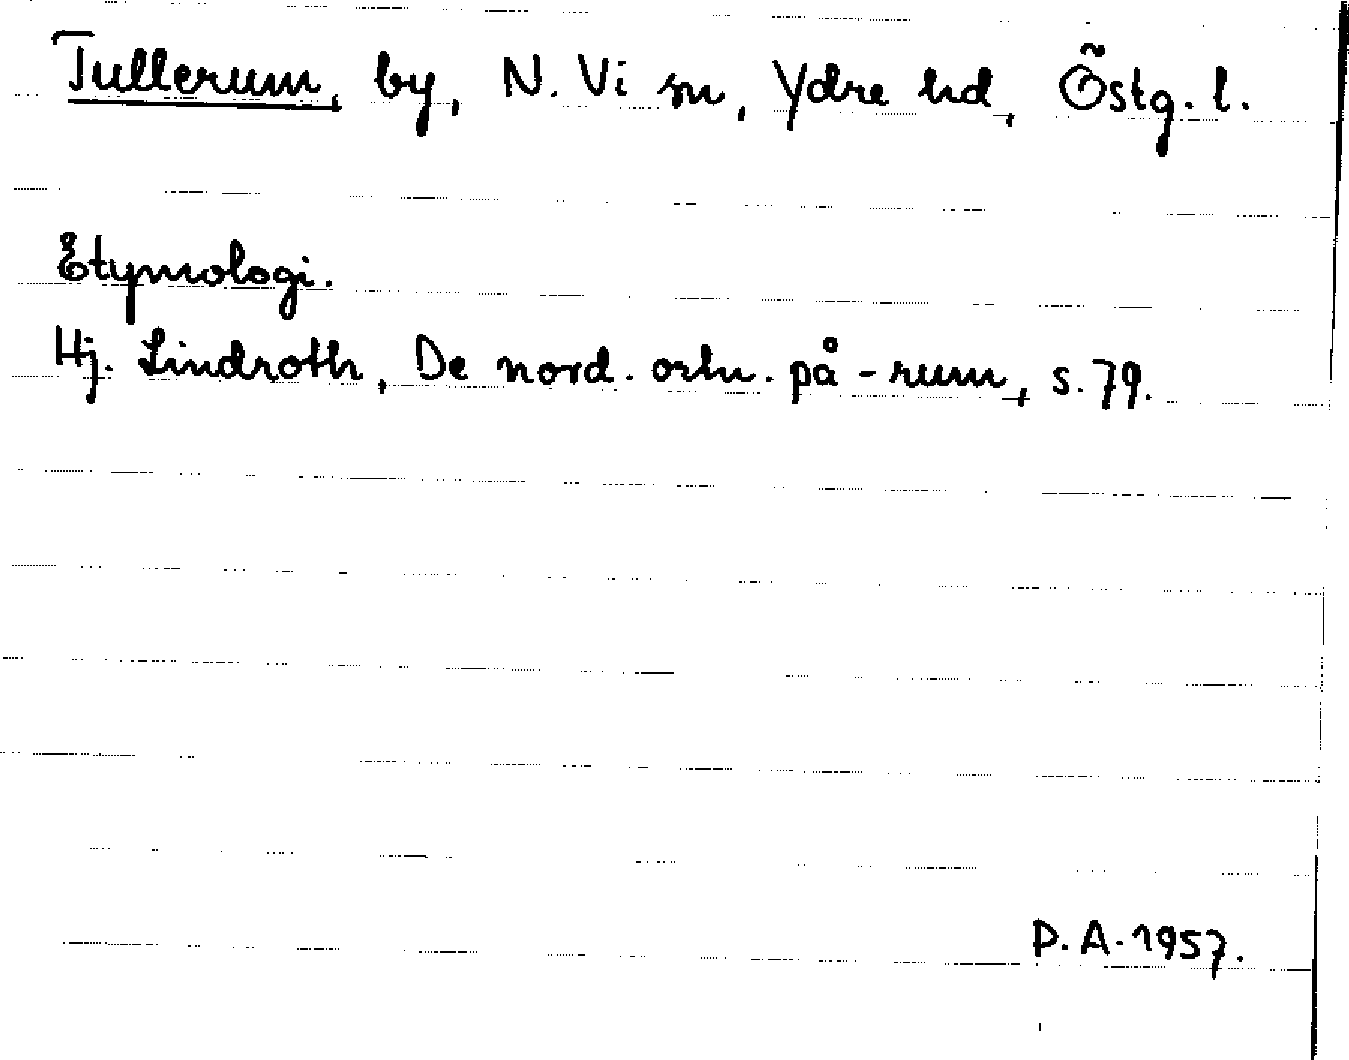 Tullerum, by, N. Vi sn, Ydre hd, Östg. l.
Etymologi.
Hj. Lindroth, De nord. ortn. på -rum, s. 79.
P. A. 1957.